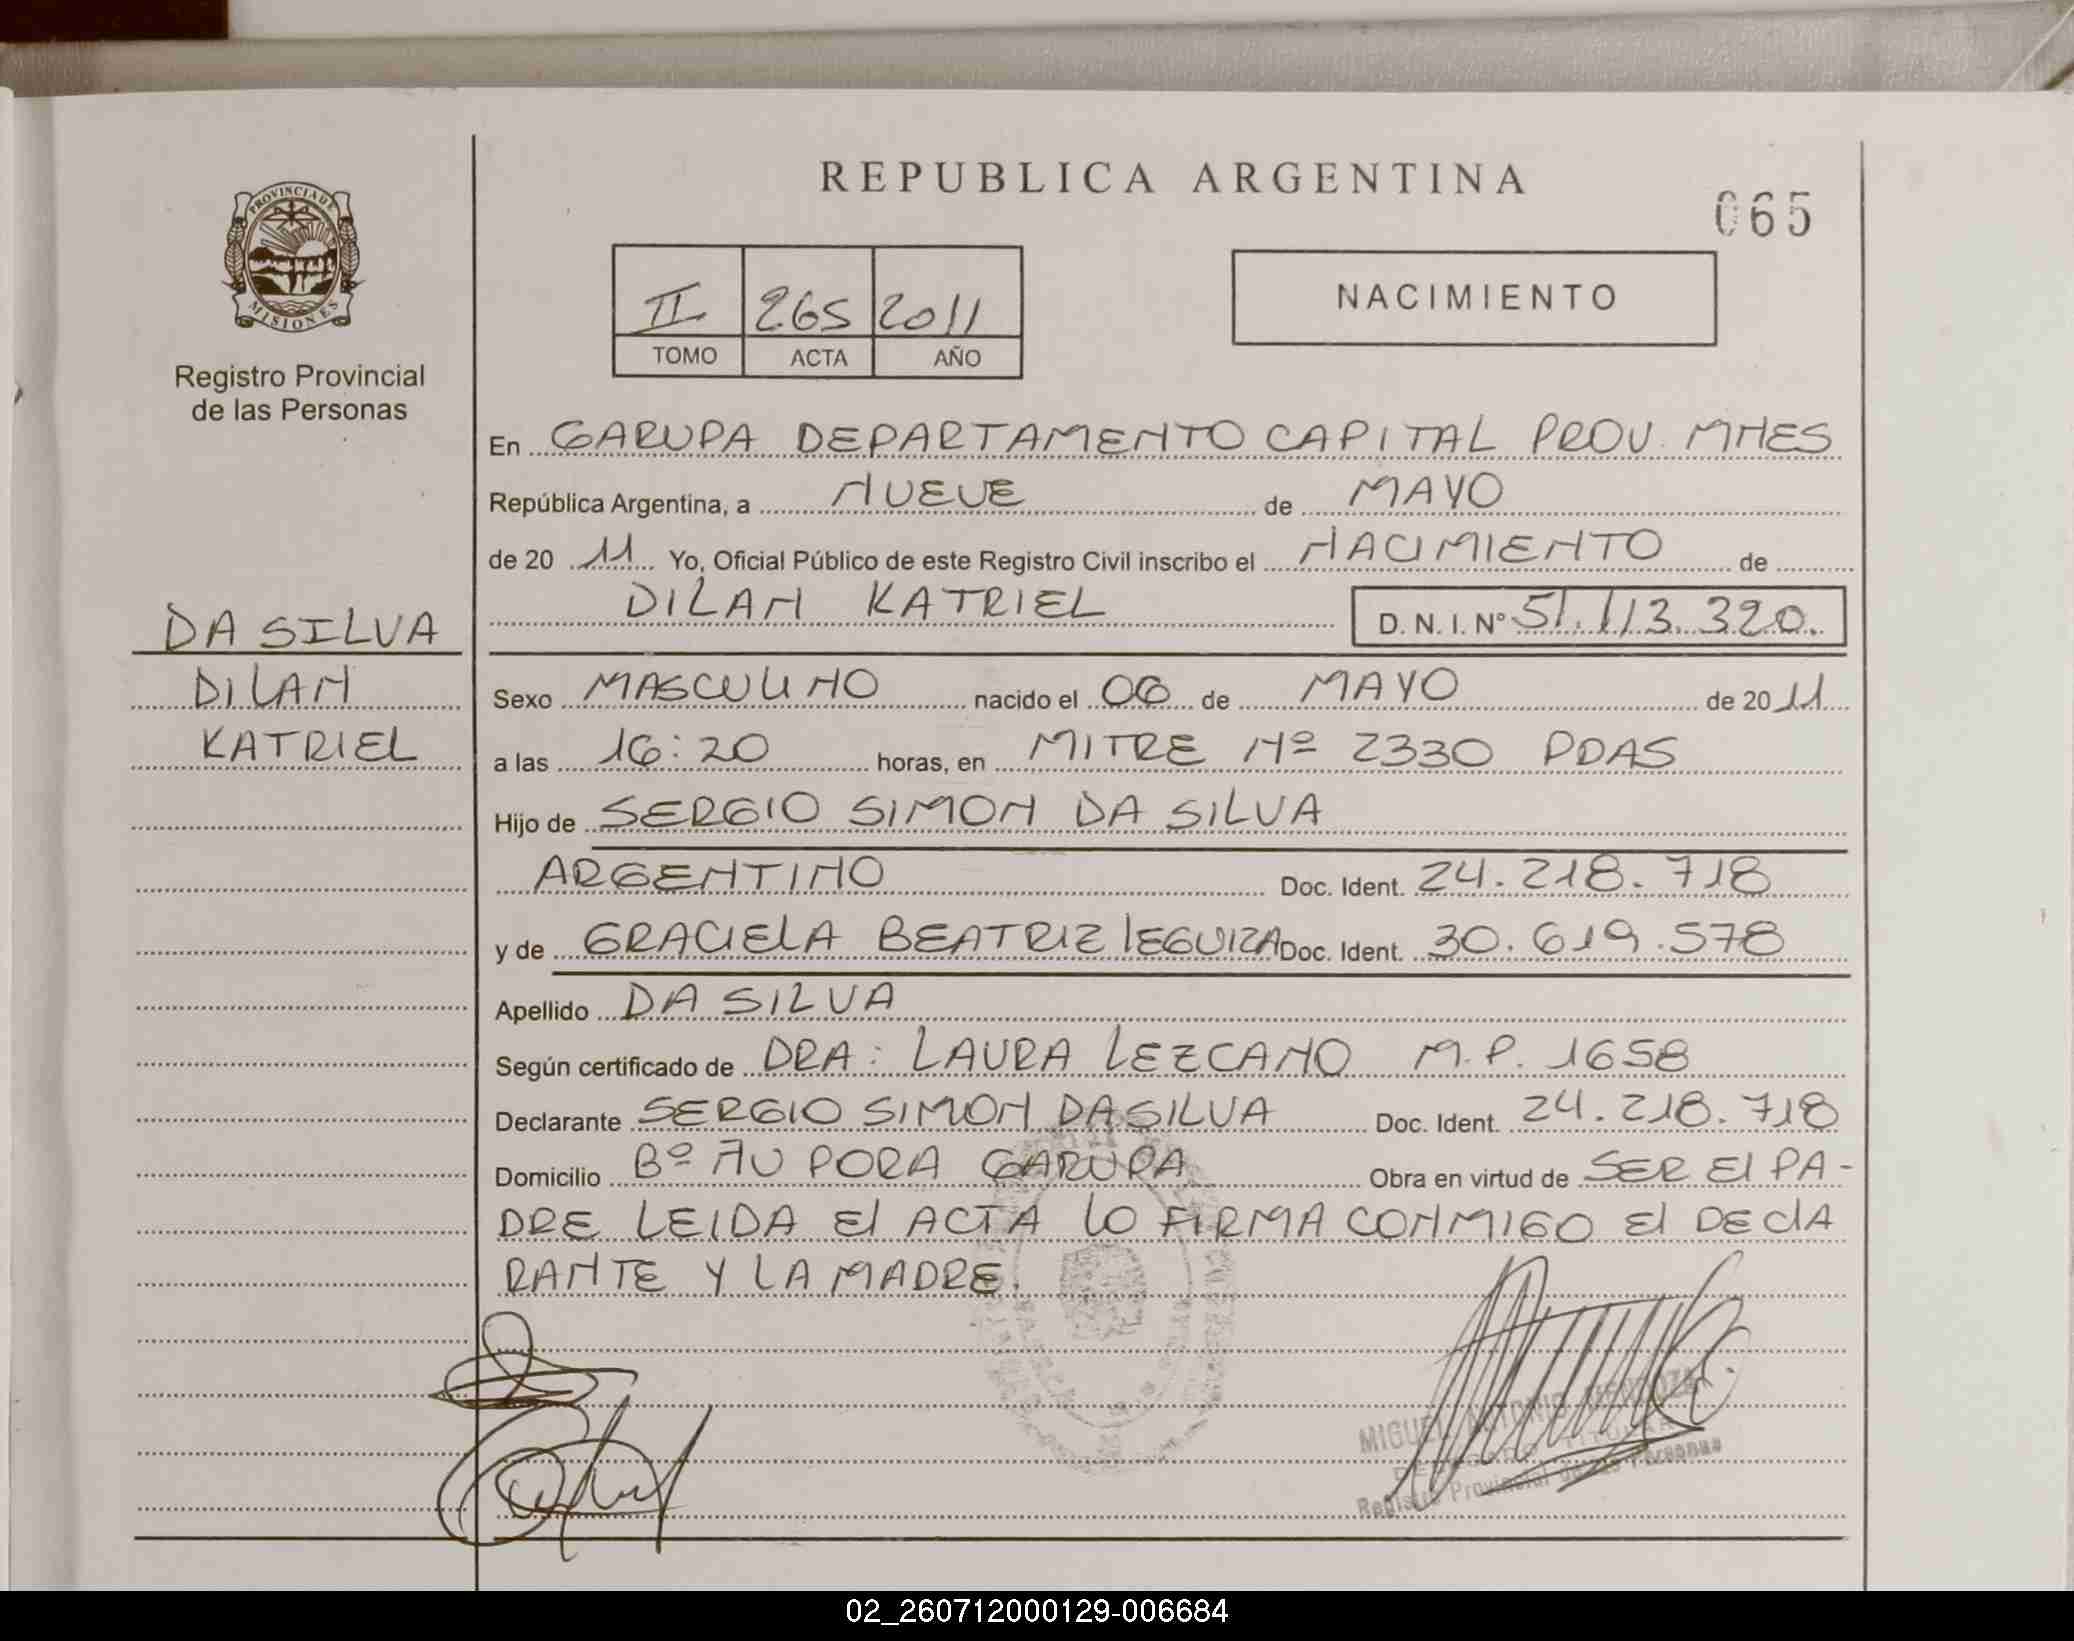 REPUBLICA ARGENTINA
065
PROVINCIA DE
MISIONES
Registro Provincial
de las Personas
II 265 2011
TOMO ACTA AÑO
NACIMIENTO
En GARUPA DEPARTAMENTO CAPITAL PROV. MNES
República Argentina, a NUEVE de MAYO
de 20 11 Yo, Oficial Público de este Registro Civil inscribo el NACIMIENTO de
DILAN KATRIEL D.N.I. Nº 51.113.320.
DA SILVA
DILAN
KATRIEL
Sexo MASCULINO nacido el 06 de MAYO de 20 11
a las 16:20 horas, en MITRE Nº 2330 PDAS
Hijo de SERGIO SIMON DA SILVA
ARGENTINO Doc. Ident. 24.218.718
y de GRACIELA BEATRIZ LEGUIZA Doc. Ident. 30.619.578
Apellido DA SILVA
Según certificado de DRA: LAURA LEZCANO M.P. 1658
Declarante SERGIO SIMON DA SILVA Doc. Ident. 24.218.718
Domicilio Bº ÑU PORA GARUPA Obra en virtud de SER El PA-
DRE LEIDA El ACTA LO FIRMA CONMIGO El DEClA
RANTE Y LA MADRE.
MIGUEL ANTONIO MENDOZA
DELEGADO TITULAR
Registro Provincial de las Personas
02_260712000129-006684